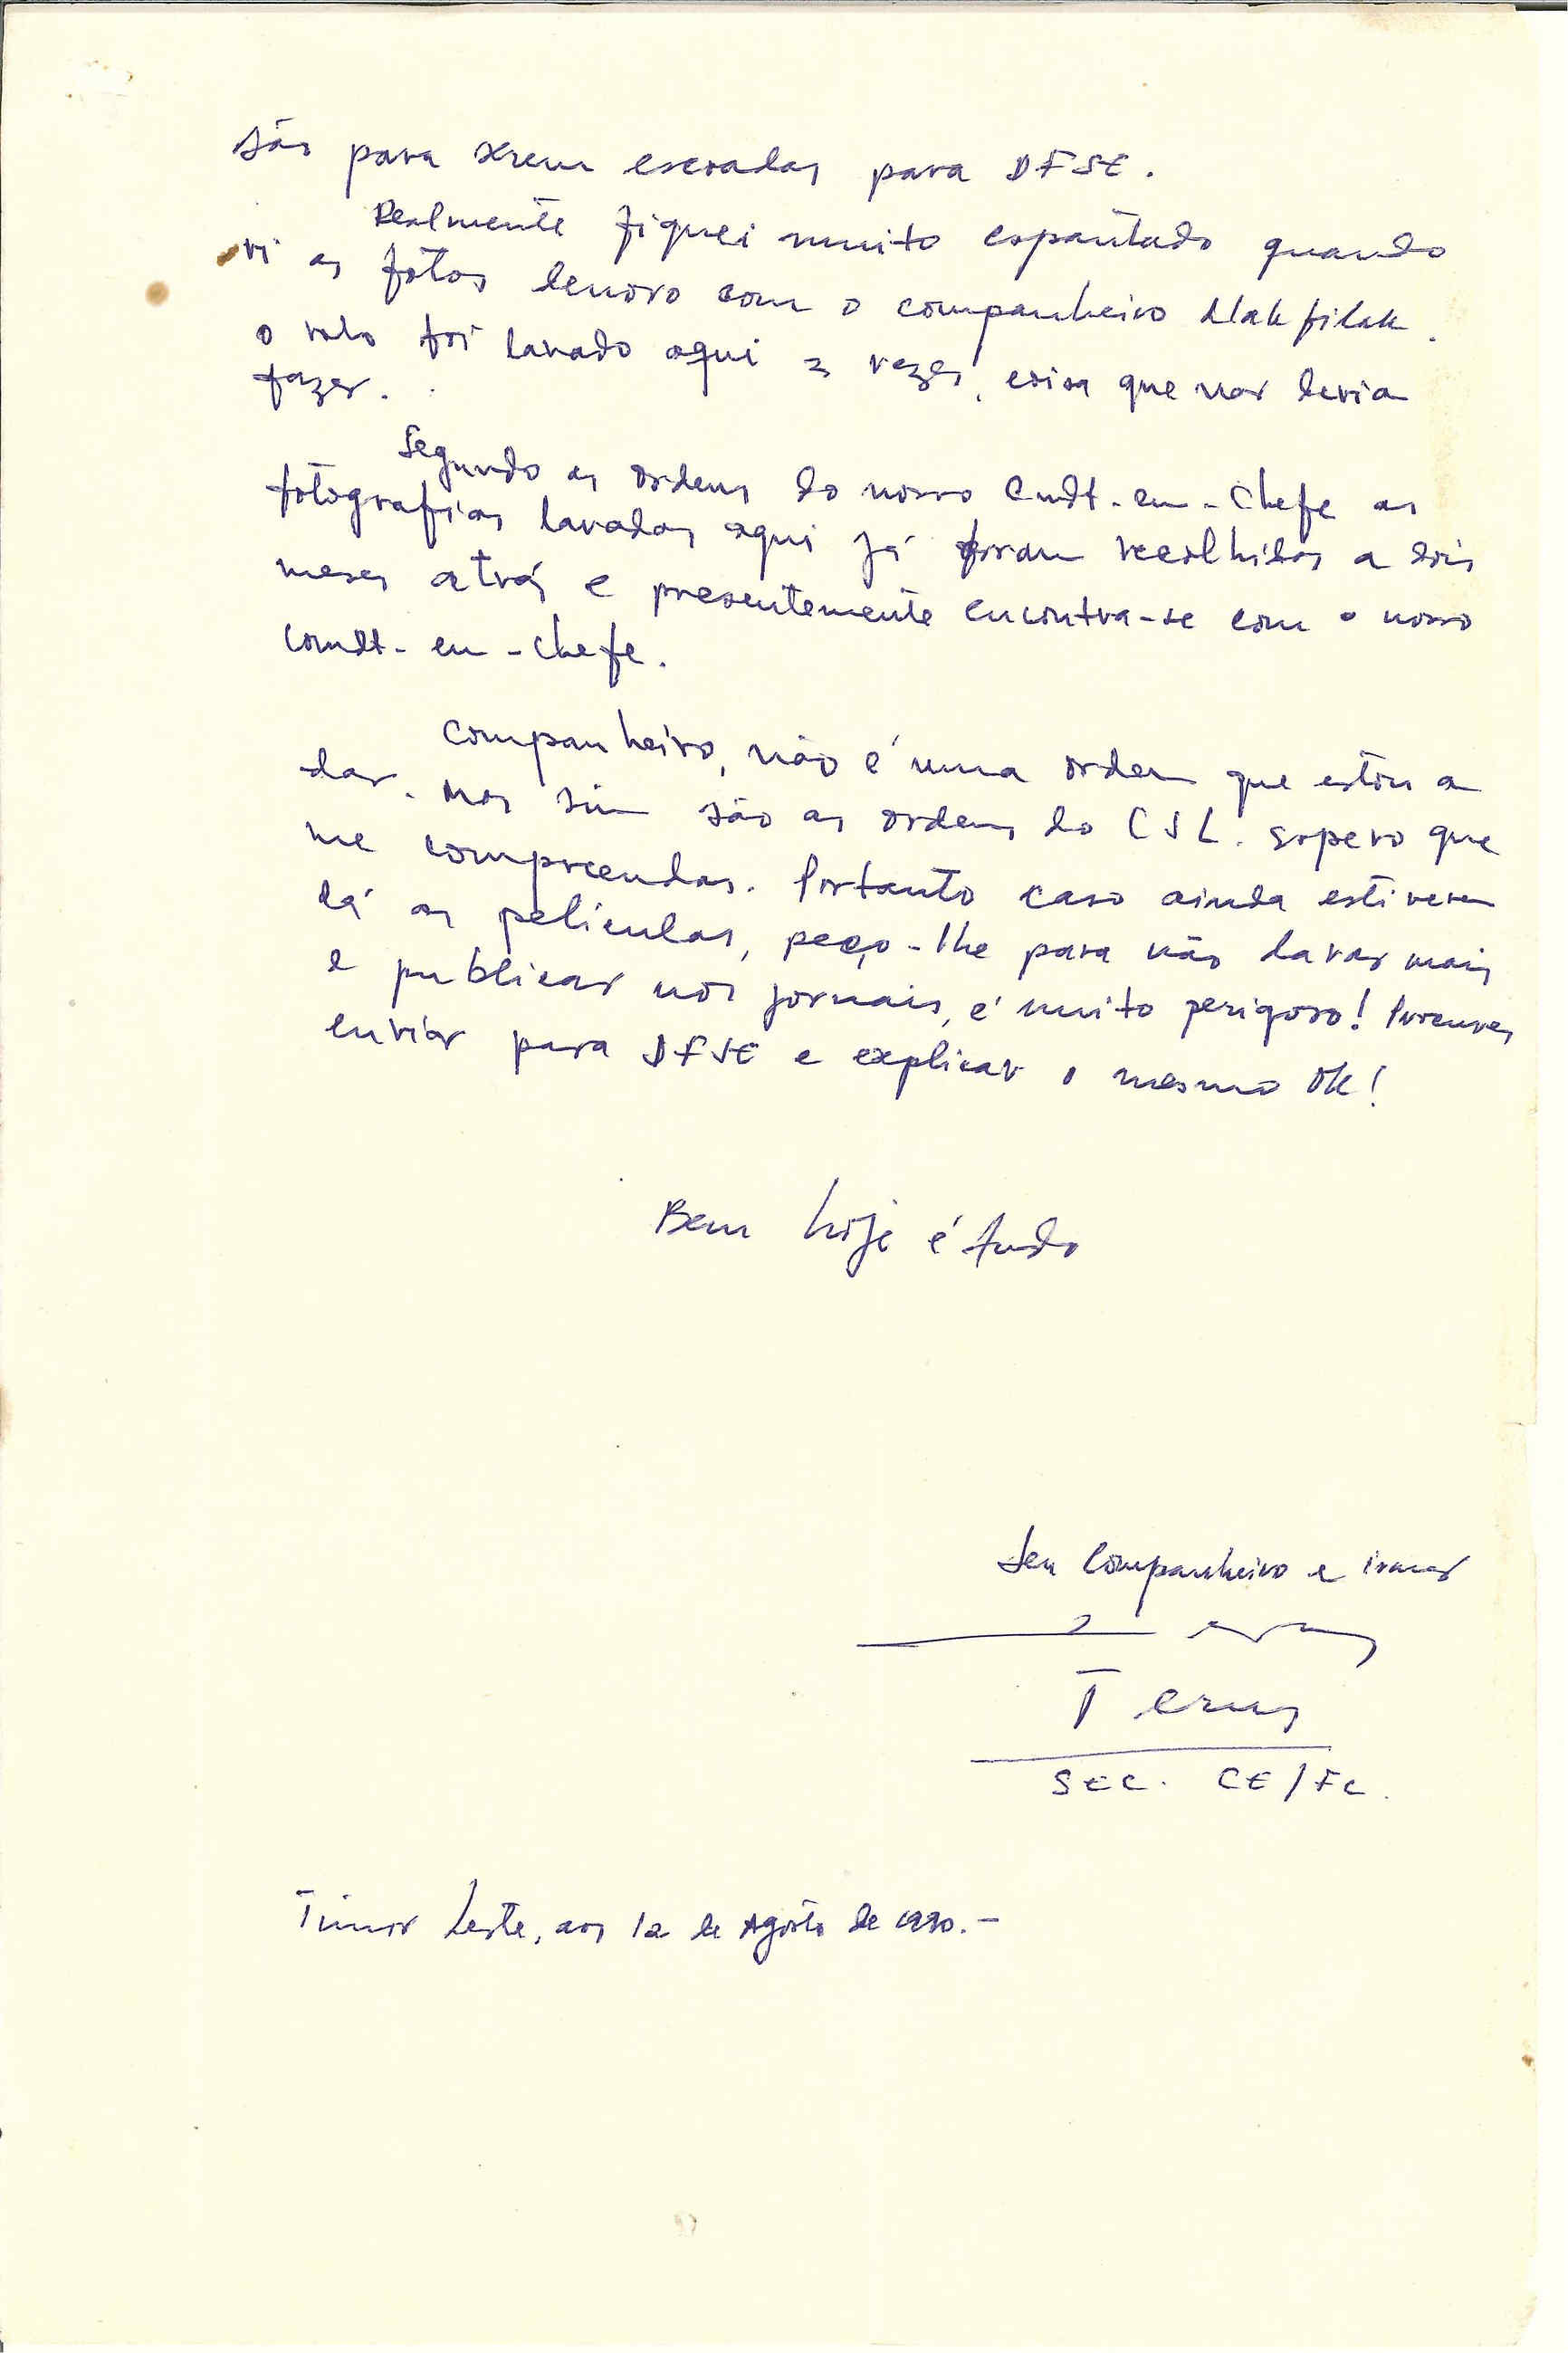 são para serem escoadas para DFSE.
Realmente fiquei muito espantado quando
vi as fotos denovo com o companheiro Makfilak.
o rolo foi lavado aqui 2 vezes, coisa que não devia
fazer.
Segundo as ordens do nosso Cmdt-em-Chefe as
fotografias lavadas aqui já foram recolhidas a dois
meses atrás e presentemente encontra-se com o nosso
Comdt-em-chefe.
Companheiro, não é uma ordem que estou a
dar. Mas sim são as ordens do CSL. Espero que
me compreendas. Portanto caso ainda estiverem
lá as películas, peço-lhe para não lavar mais
e publicar nos jornais, é muito perigoso! Procures
enviar para DFSE e explicar o mesmo OK!
Bem hoje é tudo
Seu Companheiro e irmão
Terus
SEC. CE/FC.
Timor Leste, aos 12 de Agosto de 1990.-